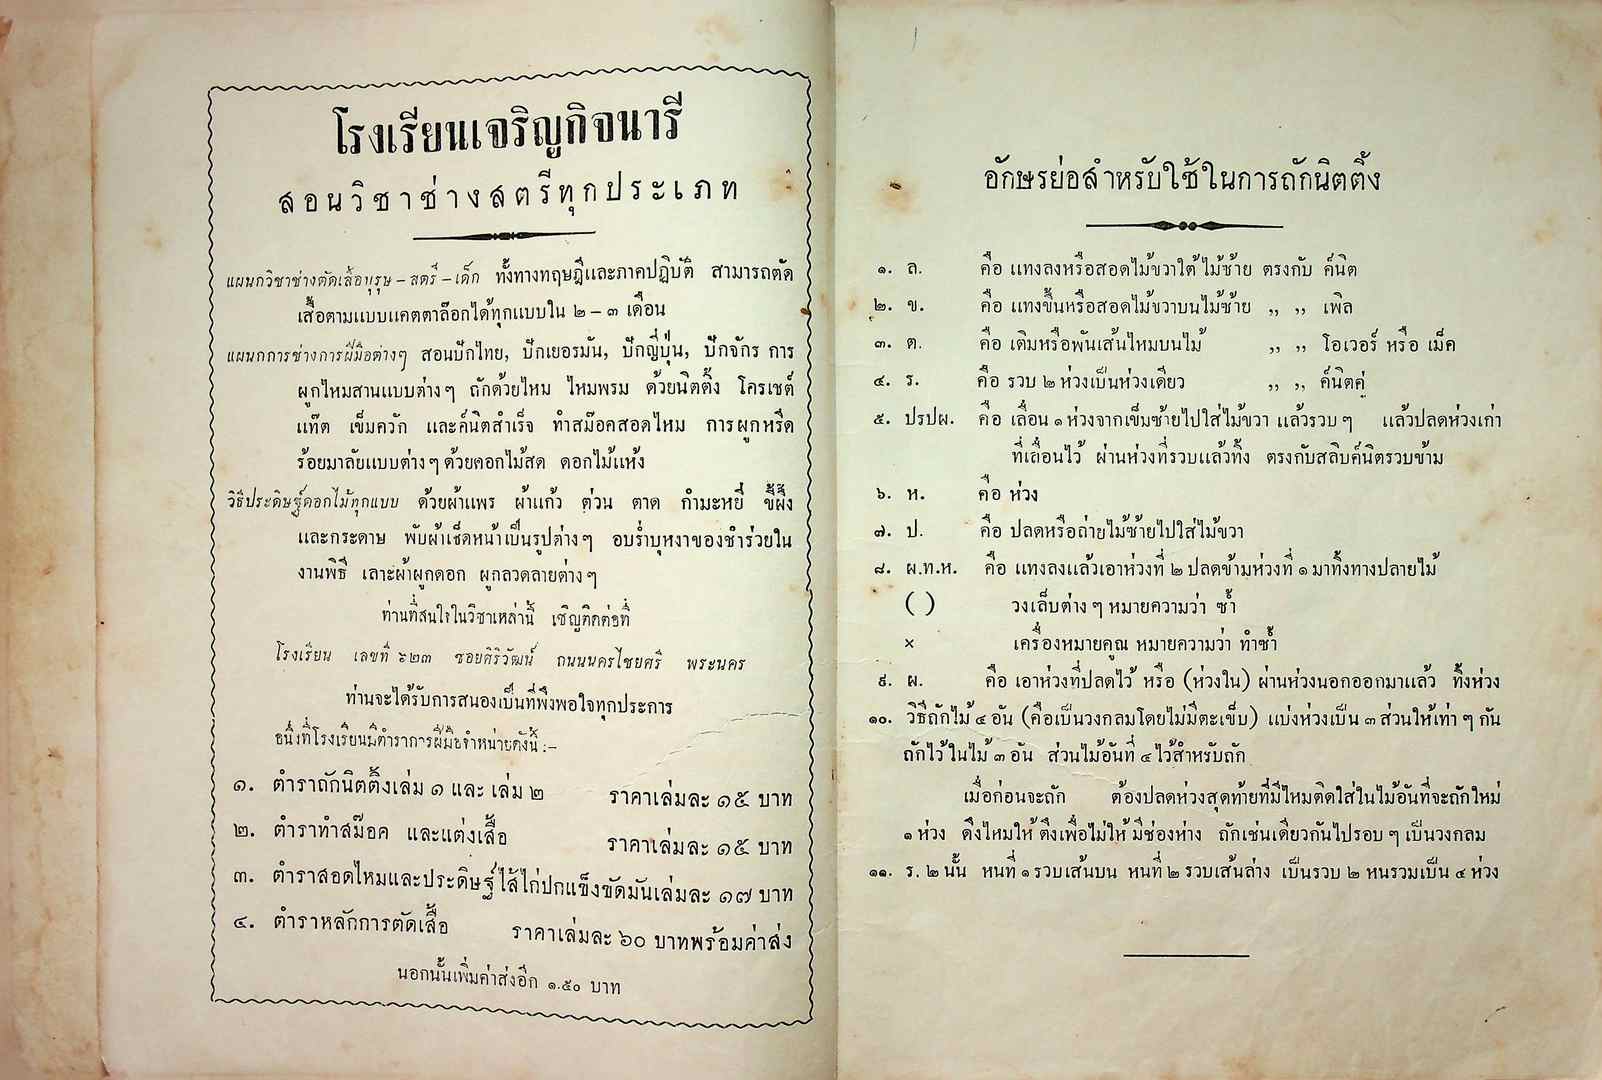 โรงเรียนเจริญกิจนารี
สอนวิชาช่างสตรีทุกประเภท
แผนกวิชาช่างตัดเสื้อบุรุษ – สตรี – เด็ก ทั้งทางทฤษฎีและภาคปฏิบัติ สามารถตัด
เสื้อตามแบบแคตตาล๊อกได้ทุกแบบใน ๒ – ๓ เดือน
แผนกการช่างการฝีมือต่างๆ สอนปักไทย, ปักเยอรมัน, ปักญี่ปุ่น, ปักจักร การ
ผูกไหมสานแบบต่างๆ ถักด้วยไหม ไหมพรม ด้วยนิตติ้ง โครเชต์
แท๊ต เข็มควัก และค์นิตสำเร็จ ทำสม๊อคสอดไหม การผูกหรีด
ร้อยมาลัยแบบต่างๆ ด้วยดอกไม้สด ดอกไม้แห้ง
วิธีประดิษฐ์ดอกไม้ทุกแบบ ด้วยผ้าแพร ผ้าแก้ว ต่วน ตาด กำมะหยี่ ขี้ผึ้ง
และกระดาษ พับผ้าเช็ดหน้าเป็นรูปต่างๆ อบร่ำบุหงาของชำร่วยใน
งานพิธี เลาะผ้าผูกดอก ผูกลวดลายต่างๆ
ท่านที่สนใจในวิชาเหล่านี้ เชิญติดต่อที่
โรงเรียน เลขที่ ๖๒๓ ซอยศิริวัฒน์ ถนนนครไชยศรี พระนคร
ท่านจะได้รับการสนองเป็นที่พึงพอใจทุกประการ
อนึ่งที่โรงเรียนมีตำราการฝีมือจำหน่ายดังนี้ :–
๑. ตำราถักนิตติ้งเล่ม ๑ และ เล่ม ๒ ราคาเล่มละ ๑๕ บาท
๒. ตำราทำสม๊อค และแต่งเสื้อ ราคาเล่มละ ๑๕ บาท
๓. ตำราสอดไหมและประดิษฐ์ไส้ไก่ปกแข็งขัดมันเล่มละ ๑๗ บาท
๔. ตำราหลักการตัดเสื้อ ราคาเล่มละ ๖๐ บาทพร้อมค่าส่ง
นอกนั้นเพิ่มค่าส่งอีก ๑.๕๐ บาท
อักษรย่อสำหรับใช้ในการถักนิตติ้ง
๑. ล. คือ แทงลงหรือสอดไม้ขวาใต้ไม้ซ้าย ตรงกับ ค์นิต
๒. ข. คือ แทงขึ้นหรือสอดไม้ขวาบนไม้ซ้าย ,, ,, เพิล
๓. ต. คือ เติมหรือพันเส้นไหมบนไม้ ,, ,, โอเวอร์ หรือ เม็ค
๔. ร. คือ รวบ ๒ ห่วงเป็นห่วงเดียว ,, ,, ค์นิตคู่
๕. ปรปผ. คือ เลื่อน ๑ ห่วงจากเข็มซ้ายไปใส่ไม้ขวา แล้วรวบ ๆ แล้วปลดห่วงเก่า
ที่เลื่อนไว้ ผ่านห่วงที่รวบแล้วทิ้ง ตรงกับสลิบค์นิตรวบข้าม
๖. ห. คือ ห่วง
๗. ป. คือ ปลดหรือถ่ายไม้ซ้ายไปใส่ไม้ขวา
๘. ผ.ท.ห. คือ แทงลงแล้วเอาห่วงที่ ๒ ปลดข้ามห่วงที่ ๑ มาทิ้งทางปลายไม้
( ) วงเล็บต่าง ๆ หมายความว่า ซ้ำ
× เครื่องหมายคูณ หมายความว่า ทำซ้ำ
๙. ผ. คือ เอาห่วงที่ปลดไว้ หรือ (ห่วงใน) ผ่านห่วงนอกออกมาแล้ว ทิ้งห่วง
๑๐. วิธีถักไม้ ๔ อัน (คือเป็นวงกลมโดยไม่มีตะเข็บ) แบ่งห่วงเป็น ๓ ส่วนให้เท่า ๆ กัน
ถักไว้ในไม้ ๓ อัน ส่วนไม้อันที่ ๔ ไว้สำหรับถัก
เมื่อก่อนจะถัก ต้องปลดห่วงสุดท้ายที่มีไหมติดใส่ในไม้อันที่จะถักใหม่
๑ ห่วง ดึงไหมให้ตึงเพื่อไม่ให้มีช่องห่าง ถักเช่นเดียวกันไปรอบ ๆ เป็นวงกลม
๑๑. ร. ๒ นั้น หนที่ ๑ รวบเส้นบน หนที่ ๒ รวบเส้นล่าง เป็นรวบ ๒ หนรวมเป็น ๔ ห่วง